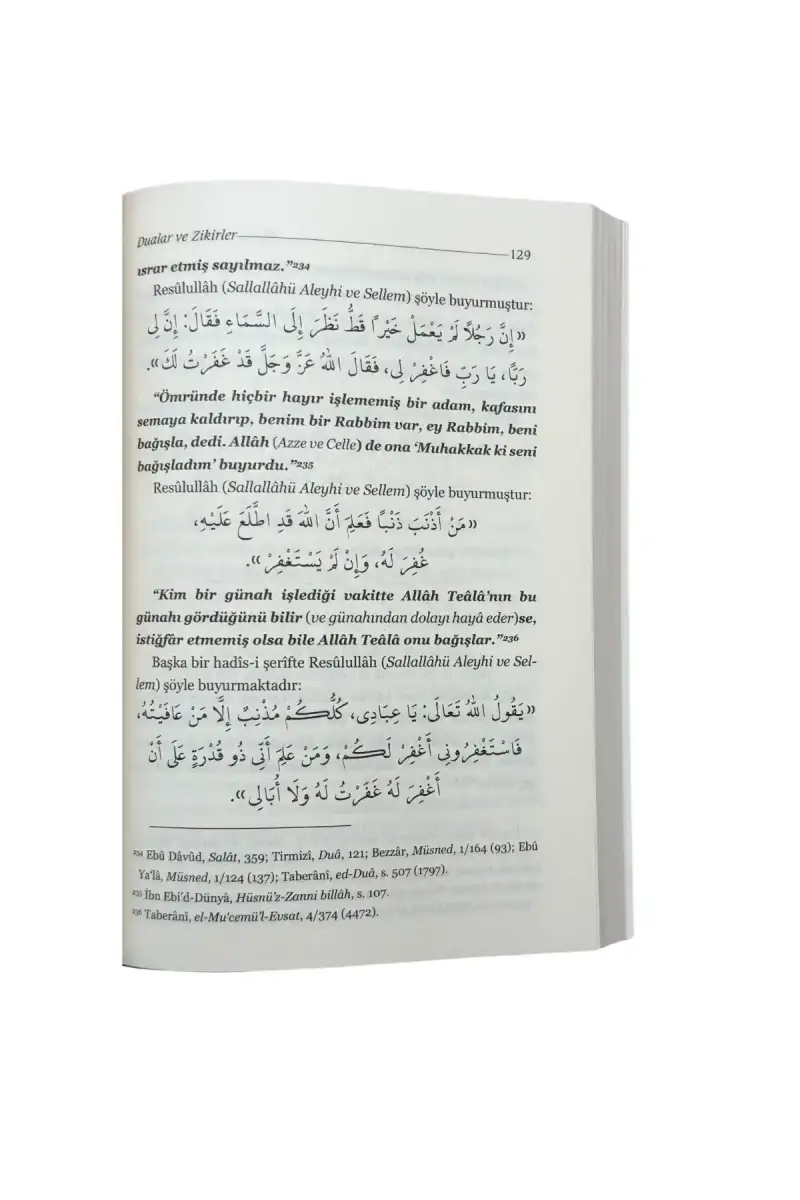 Dualar ve Zikirler
129
ısrar etmiş sayılmaz."²³⁴
Resûlullâh (Sallallâhü Aleyhi ve Sellem) şöyle buyurmuştur:
«إِنَّ رَجُلًا لَمْ يَعْمَلْ خَيْرًا قَطُّ نَظَرَ إِلَى السَّمَاءِ فَقَالَ: إِنَّ لِي
رَبًّا، يَا رَبِّ فَاغْفِرْ لِي، فَقَالَ اللهُ عَزَّ وَجَلَّ قَدْ غَفَرْتُ لَكَ».
"Ömründe hiçbir hayır işlememiş bir adam, kafasını
semaya kaldırıp, benim bir Rabbim var, ey Rabbim, beni
bağışla, dedi. Allâh (Azze ve Celle) de ona 'Muhakkak ki seni
bağışladım' buyurdu."²³⁵
Resûlullâh (Sallallâhü Aleyhi ve Sellem) şöyle buyurmuştur:
«مَنْ أَذْنَبَ ذَنْبًا فَعَلِمَ أَنَّ اللهَ قَدِ اطَّلَعَ عَلَيْهِ،
غُفِرَ لَهُ، وَإِنْ لَمْ يَسْتَغْفِرْ».
"Kim bir günah işlediği vakitte Allâh Teâlâ'nın bu
günahı gördüğünü bilir (ve günahından dolayı hayâ eder)se,
istiğfâr etmemiş olsa bile Allâh Teâlâ onu bağışlar."²³⁶
Başka bir hadîs-i şerîfte Resûlullâh (Sallallâhü Aleyhi ve Sel-
lem) şöyle buyurmaktadır:
«يَقُولُ اللهُ تَعَالَى: يَا عِبَادِى، كُلُّكُمْ مُذْنِبٌ إِلَّا مَنْ عَافَيْتُهُ،
فَاسْتَغْفِرُونِى أَغْفِرْ لَكُمْ، وَمَنْ عَلِمَ أَنِّى ذُو قُدْرَةٍ عَلَى أَنْ
أَغْفِرَ لَهُ غَفَرْتُ لَهُ وَلَا أُبَالِى».
²³⁴ Ebû Dâvûd, Salât, 359; Tirmizî, Duâ, 121; Bezzâr, Müsned, 1/164 (93); Ebû
Ya'lâ, Müsned, 1/124 (137); Taberânî, ed-Duâ, s. 507 (1797).
²³⁵ İbn Ebi'd-Dünyâ, Hüsnü'z-Zanni billâh, s. 107.
²³⁶ Taberânî, el-Mu'cemü'l-Evsat, 4/374 (4472).